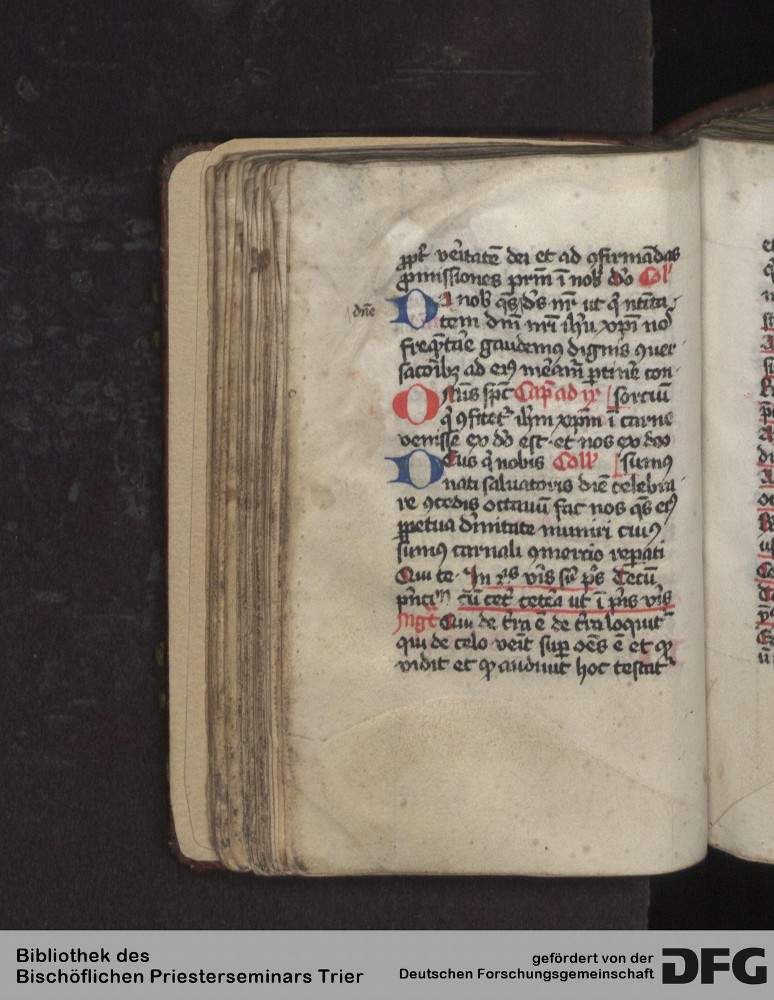 ꝓpt̄ v̓itatē dei et ad ꝯfirmādas
ꝓmissiones prm̄ i nob dō Coll
dn̄e
Da nob q̄s ds̄ nr̄ ut q̄ natita
tem dn̄i nr̄i ih̓u xp̄i no
freq̄tare gaudemꝰ dignis ꝯuer
sac̄oībꝫ ad eiꝰ ꝑtin̓e con
Om̄is sp̄c Cap̄ ad ix sorciū
q̄ ꝯfitet ih̄m xp̄m ī carne
venisse ex dō est et nos ex deo
Deus q̄ nobis Coll sumꝰ
nati saluatoris diē celebra
re ꝯcedis octauū fac nos q̄s eiꝰ
ꝑpetua diuinitate muniri cuiꝰ
sumꝰ carnali ꝯmercio repati
Qui te In ij̄s vīs sū p̄s Tecū
pn̄ci cū cet̄ cetera ut ī p̄mis vīs
Mag̓t Qui de t̓ra ē de t̓ra loquit̓
qui de celo venit suꝑ oēs ē et qꝫ
vidit et qꝫ audiuit hoc testat̓
Bibliothek des
Bischöflichen Priesterseminars Trier
gefördert von der
Deutschen Forschungsgemeinschaft
DFG